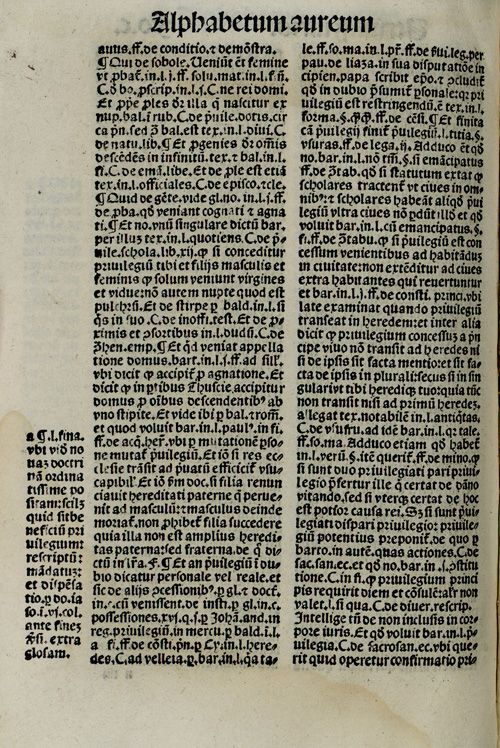 Alphabetum aureum
autis.ff.de conditio.⁊ demōstra.
¶ Qui de sobole. Veniūt em̄ femine
vt ꝓbat̄.in.l.j.ff.solu.mat.in.l.f.n̄.
C.d̄ bo.ꝓscrip.in.l.j.C.ne rei domi.
Et ꝓpe ꝓles dr̄ illa q̄ nascitur ex
nup.bal.i rub.C.de
ca pn̄.sed d̄ bal.est tex.in.l.diui.C.
de natu.lib. ¶ Et ꝓgenies dr̄ omnis
descēdēs in infinitū.tex.⁊ bal.in.l.
fi.C.de emā.libe. Et de ꝓle est etiā
tex.in.l.officiales.C.de episco.⁊cle.
¶ Quid de gēte.vide gl.no.in.l.j.ff.
de ꝓba.qd̄ veniant cognati ⁊ agna
ti. ¶ Et no.vnū singulare dictū bar.
per illuꝫ tex.in.l.quotiens.C.de
schola.lib.xij.ꝙ si conceditur
priuilegiū tibi et filijs masculis et
feminis ꝙ solum veniunt virgines
et vidue:nō autem nupte quod est
pulchrū. Et de stirpe ꝑ bald.in.l.si
qs̄ in suo.C.de inoffi.test. Et de ꝓ
ximis et ꝯsortibus in.l.dudū.C.de
emp. ¶ Et qd̄ veniat appella
tione domus.bart.in.l.j.ff.ad sill̄.
vbi dicit ꝙ accipit̄ ꝓ agnatione. Et
dicit ꝙ in ꝑtibus Thuscie accipitur
domus ꝓ oībus descendentibꝰ ab
vno stipite. Et vide ibi ꝑ bal.
et quod voluit bar.in.l.paulꝰ.in fi.
ff.de acq.her̄.vbi ꝑ mutationē ꝑso-
ne mutat̄ p̄uilegiū. Et iō si res ec-
clesie trāsit ad p̄uatū efficit̄ vsu-
capibil̄. Et iō doc.si filia renun
ciauit hereditati paterne q̄ perue-
nit ad masculū:⁊ masculus deinde
moriat̄.non ꝓhibet̄ filia succedere
quia illa non est amplius heredi-
tas paterna:sed fraterna.de q̄ di-
ctū in
dubio dicatur personale vel reale.et
sic de alijs
in.
possessiones.xvj.q.j.ꝑ Johā.and.in
reg.priuilegiū.in mercu.ꝑ bald.
a fi.ff.de cōsti.
des.C.ad velleia.ꝑ.bar.in.l.
a ¶.l.fina.
vbi vid̄ no
uaꝫ doctri
nā ordina
tissime po
sitam:scilꝫ
quid sit be
neficiū pri
uilegium:
rescriptū:
mādatuꝫ:
et dispēsa
tio.
so.
ante fineꝫ
extra
glosam.
le.ff.so.ma.in.l.
pau.de liaza.in sua disputatiōe in
cipien.papa scribit epo.⁊ ꝯcludit̄
qd̄ in dubio p̄sumit̄ ꝑsonale:qꝛ pri
uilegiū est restringendū.
forma.§. ff.de cēsi. ¶ Et finita
cā p̄uilegij finit̄ p̄uilegiū.l.titia.§.
vsuras.ff.de lega.ij. Adduco ⁊ qd̄
no.bar.in.l.nō tm̄.§.si emācipatus
ff.de
scholares tractent̄ vt ciues in om-
nibꝰ:⁊ scholares habeāt aliqd̄ p̄ui
legiū vltra ciues nō ꝑdūt illd̄ et qd̄
voluit bar.in.l.cū emancipatus.§.
fi.ff.de si p̄uilegiū est con
cessum venientibus ad habitāduꝫ
in ciuitate:non extēditur ad ciues
extra habitantes qui reuertuntur
et bar.in.l.j.ff.de consti.princi.vbi
late examinat quando priuilegiū
transeat in heredem:et inter alia
dicit ꝙ priuilegium concessuꝫ a pn̄
cipe viuo nō transit ad heredes ni
si de ipsis sit facta mentio:⁊ sit fa-
cta de ipsis in plurali:secus si in sin
gulari:vt tibi heredi
non transit nisi ad primū heredeꝫ.
allegat tex.notabilē in.l.antiqtas.
C.de vsufru.ad idē bar.in.l.
ff.so.ma. Adduco etiam qd̄ habet̄
in.l.verū.§.itē querit̄.ff.de mino.ꝙ
si sunt duo priuilegiati pari priui-
legio p̄fertur ille q̄ certat de dāno
vitando.sed si vterqꝫ certat de hoc
est potior causa rei. Sꝫ si sunt p̄ui-
legiati dispari priuilegio:priuile-
giū potentius preponit̄.de quo ꝑ
barto.in autē.quas actiones.C.de
sac.san.ec.et qd̄ no.bar.in.
tione.C.in fi.ꝙ priuilegium princi
pis requirit diem et cōsulē:alr̄ non
valet.l.si qua.C.de diuer.rescrip.
Intellige tn̄ de non inclusis in cor-
pore iuris. Et qd̄ voluit bar.in.l.p̄-
uilegia.C.de sacrosan.ec.vbi que-
rit quid operetur confirmatio pri-